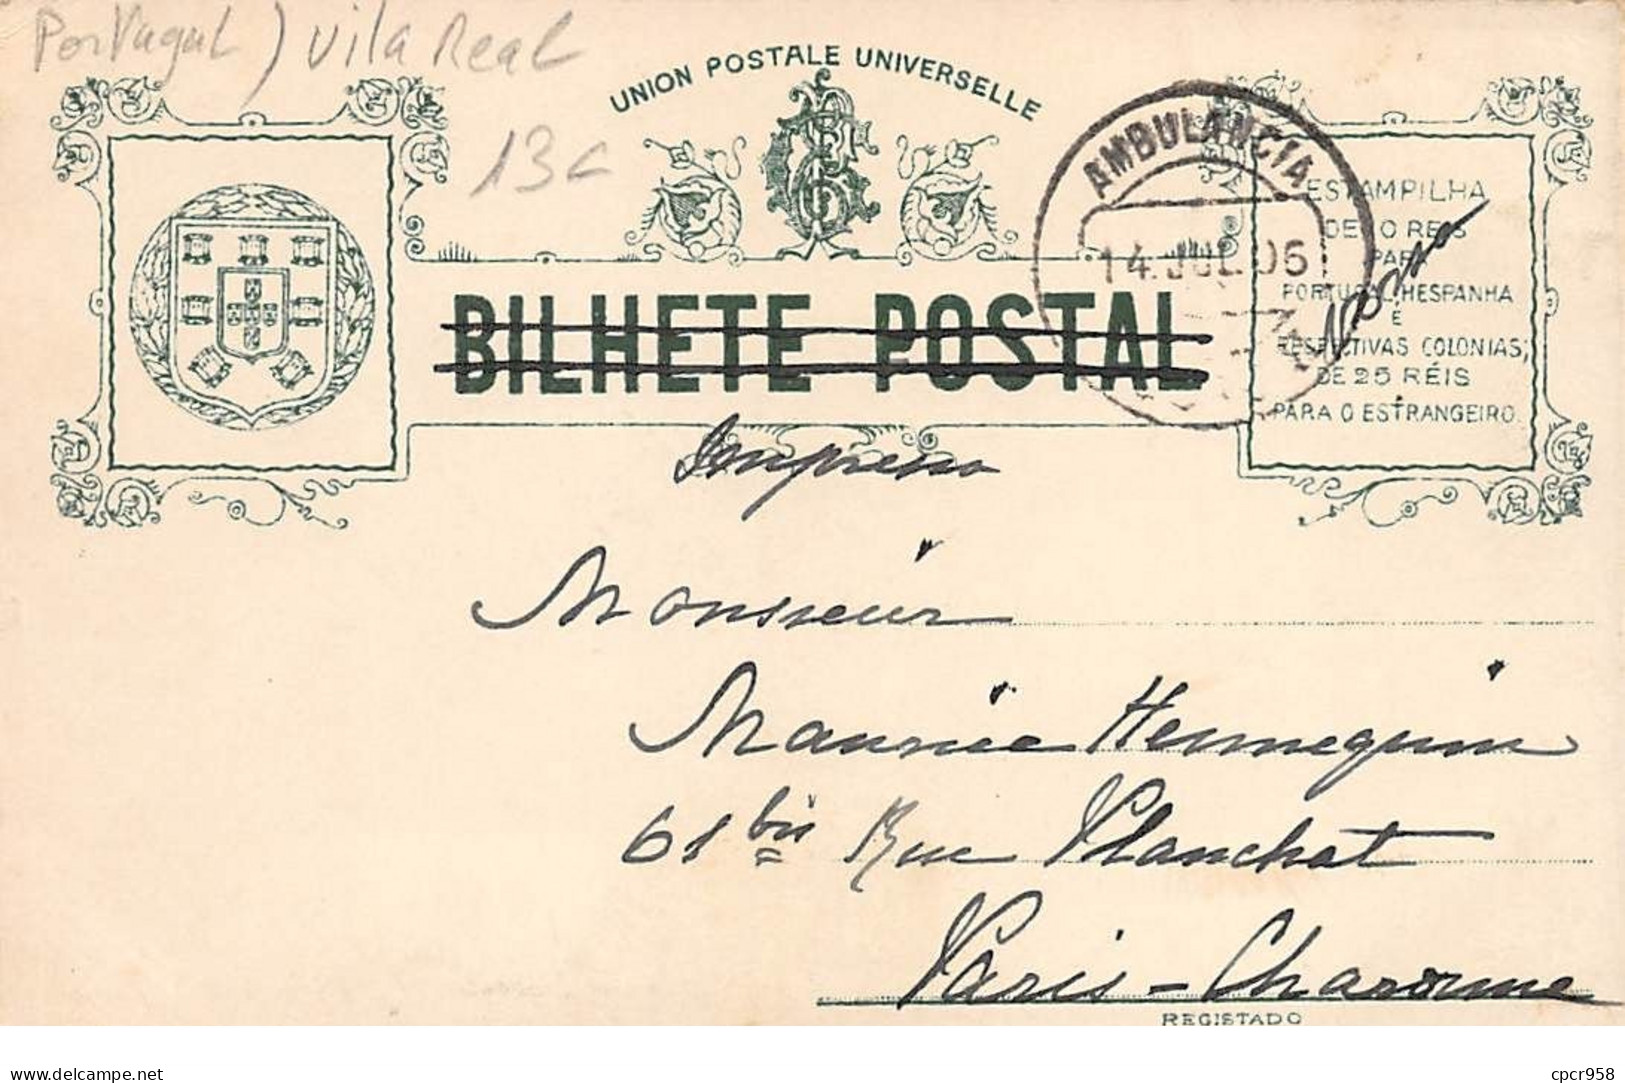 Portugal) Vila Real
13c
UNION POSTALE UNIVERSELLE
AMBULANCIA
14.JUL.06
BILHETE POSTAL
ESTAMPILHA
DE 10 REIS
PARA
PORTUGAL, HESPANHA
E
RESPECTIVAS COLONIAS;
DE 25 RÉIS
PARA O ESTRANGEIRO.
Impresso
Monsieur
Maurice Hennequin
61 bis Rue Planchat
Paris - Charonne
REGISTADO
delcampe.net
cpcr958